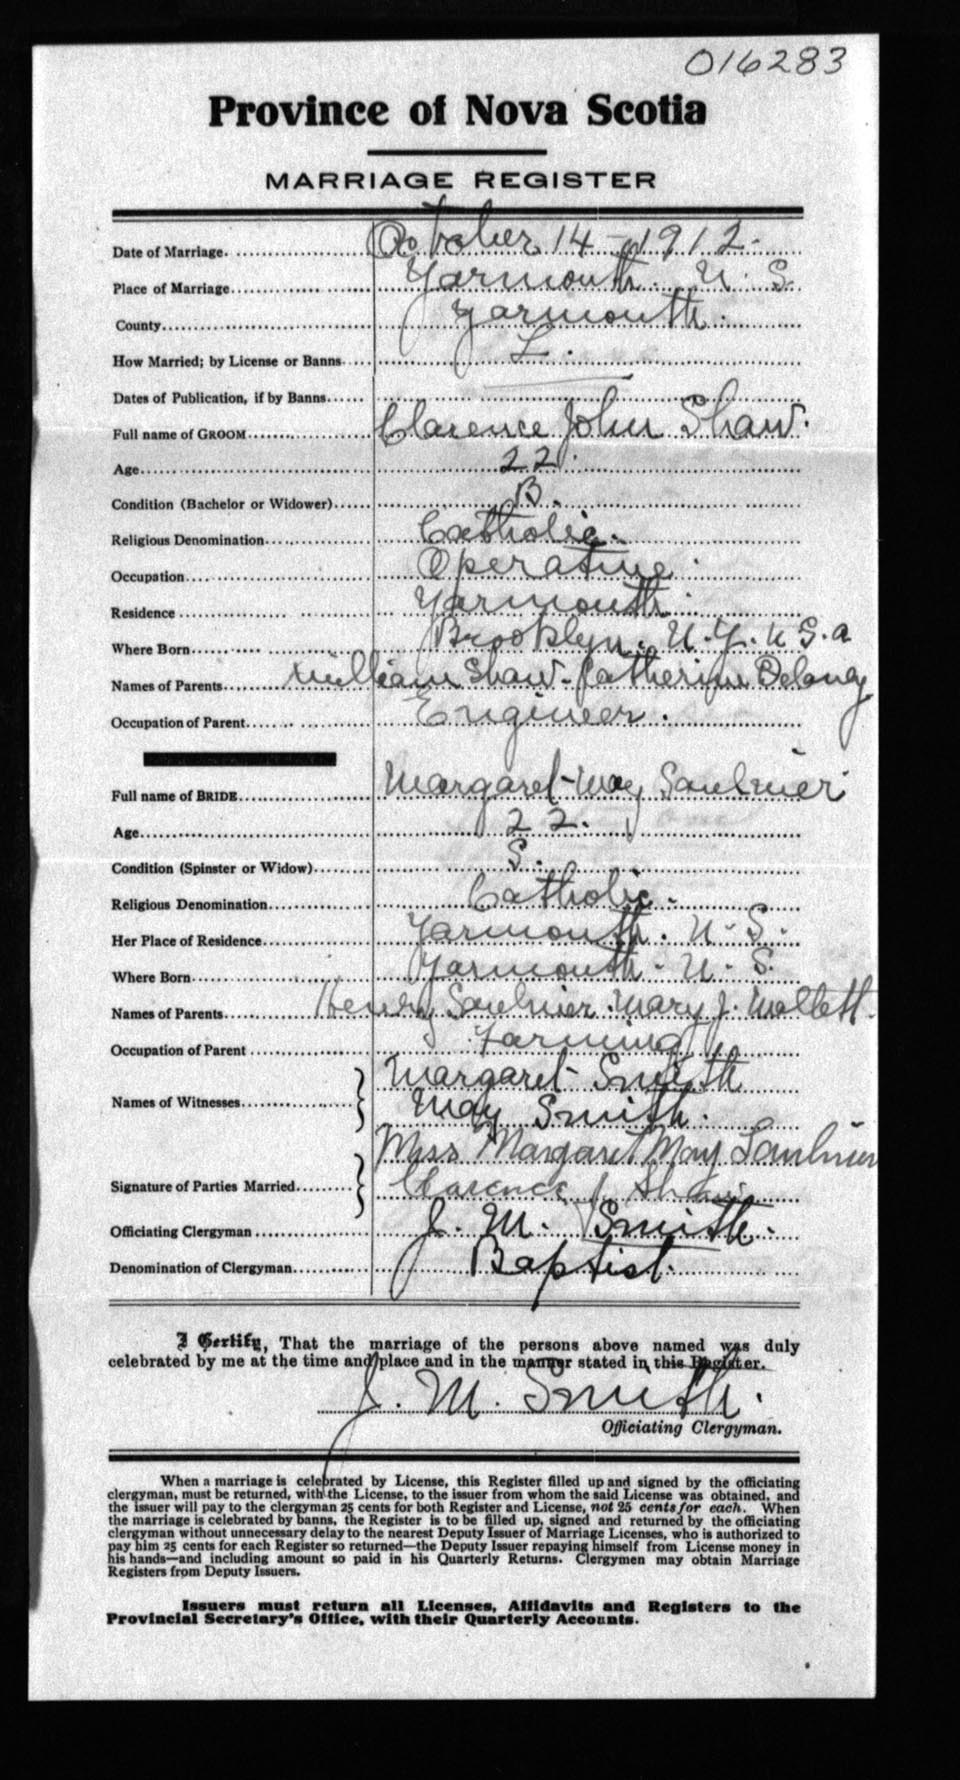 016283
Province of Nova Scotia
MARRIAGE REGISTER
Date of Marriage. October 14 - 1912.
Place of Marriage Yarmouth. N. S.
County Yarmouth.
How Married; by License or Banns L.
Dates of Publication, if by Banns
Full name of GROOM Clarence John Shaw.
Age 22.
Condition (Bachelor or Widower) B.
Religious Denomination Catholic.
Occupation Operative.
Residence Yarmouth.
Where Born Brooklyn. N.Y. U S.a
Names of Parents William Shaw - Catherine Delaney
Occupation of Parent Engineer.
Full name of BRIDE Margaret May Saulnier
Age 22.
Condition (Spinster or Widow) S.
Religious Denomination Catholic.
Her Place of Residence Yarmouth. N. S.
Where Born Yarmouth. N. S.
Names of Parents Henry Saulnier. Mary J.
Occupation of Parent Farming
Names of Witnesses Margaret Smith
May Smith.
Signature of Parties Married Miss Margaret May Saulnier
Clarence J Shaw
Officiating Clergyman J. M. Smith.
Denomination of Clergyman Baptist.
I Certify, That the marriage of the persons above named was duly
celebrated by me at the time and place and in the manner stated in this Register.
J. M. Smith.
Officiating Clergyman.
When a marriage is celebrated by License, this Register filled up and signed by the officiating
clergyman, must be returned, with the License, to the issuer from whom the said License was obtained, and
the issuer will pay to the clergyman 25 cents for both Register and License, not 25 cents for each. When
the marriage is celebrated by banns, the Register is to be filled up, signed and returned by the officiating
clergyman without unnecessary delay to the nearest Deputy Issuer of Marriage Licenses, who is authorized to
pay him 25 cents for each Register so returned—the Deputy Issuer repaying himself from License money in
his hands—and including amount so paid in his Quarterly Returns. Clergymen may obtain Marriage
Registers from Deputy Issuers.
Issuers must return all Licenses, Affidavits and Registers to the
Provincial Secretary's Office, with their Quarterly Accounts.